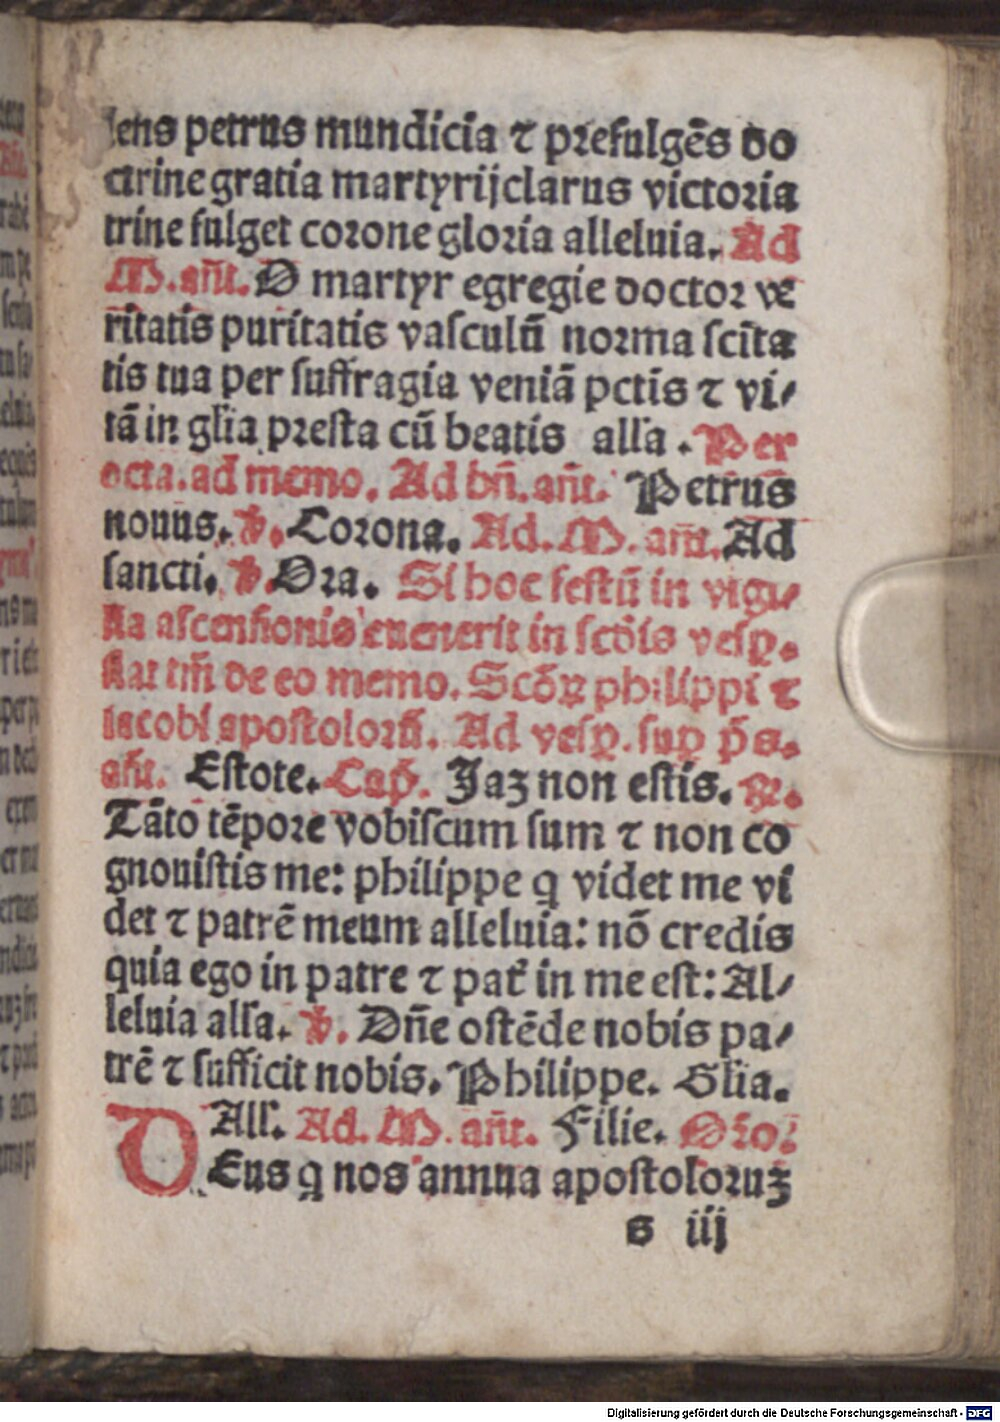 lens petrus mundicia ⁊ prefulgēs do
ctrine gratia martyrij clarus victoria
trine fulget corone gloria alleluia. Ad
M. añt. O martyr egregie doctor ve
ritatis puritatis vasculū norma scīta
tis tua per suffragia veniā pctīs ⁊ vi⸗
tā in glīa presta cū beatis alla. Per
octa. ad memo. Ad bñ. añt. Petrus
nouus. ℣. Corona. Ad. M. añt. Ad
sancti. ℣. Ora. Si hoc festū in vigi⸗
lia ascensionis euenerit in scd̄is vesp̲.
fiat tm̄ de eo memo. Scōꝝ philippi ⁊
iacobi apostolorū. Ad vesp̲. sup̲ p̄s.
añt. Estote. Cap̄. Jaꝫ non estis. ℟.
Tāto tēpore vobiscum sum ⁊ non co
gnouistis me: philippe q videt me vi
det ⁊ patrē meum alleluia: nō credis
quia ego in patre ⁊ pat̄ in me est: Al⸗
leluia alla. ℣. Dñe ostēde nobis pa⸗
trē ⁊ sufficit nobis. Philippe. Glīa.
All. Ad. M. añt. Filie. Oro.
DEus q nos annua apostoloruꝫ
s iij
Digitalisierung gefördert durch die Deutsche Forschungsgemeinschaft - DFG